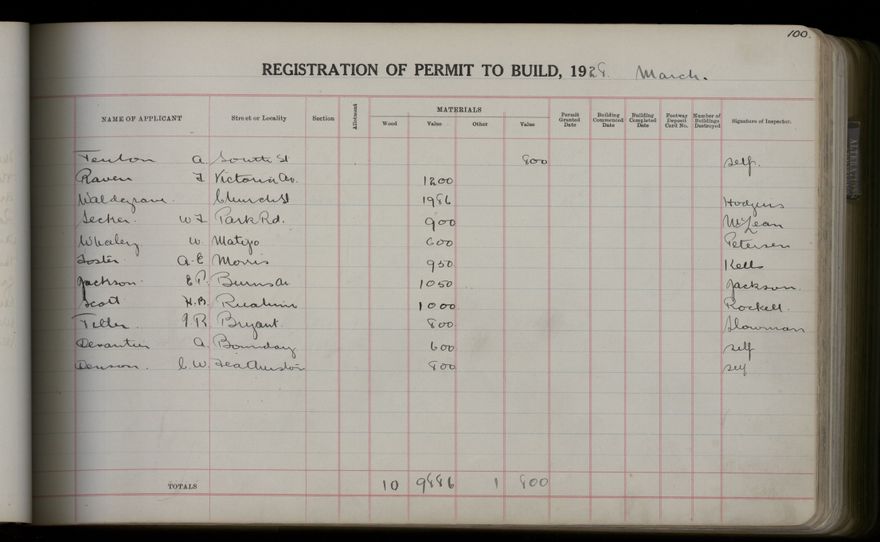 100.
REGISTRATION OF PERMIT TO BUILD, 1929. March.
NAME OF APPLICANT Street or Locality Section Allotment MATERIALS Wood Value Other Value Permit Granted Date Building Commenced Date Building Completed Date Footway Deposit Card No. Number of Buildings Destroyed Signature of Inspector.
Fenton A. South St 800 self.
Raven F Victoria Av. 1200
Waldegrave. Church St 1986 Hodgens
Secker. W F Park Rd. 900 McLean
Whaley W. Matipo 600 Petersen
Foster A. E Morris 950 Kells
Jackson. E P. Burns Av 1050 Jackson.
Scott H. B. Ruahine 1000 Rockell.
F.R Bryant. 800 Slowman
A. Boundary 600 self
Denson. C. W. Featherston 800 self
TOTALS 10 9886 1 800
ALTERATIONS